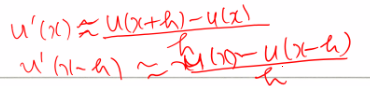 u'(x) ≈ u(x+h) - u(x) / h
u'(x-h) ≈ u(x) - u(x-h) / h